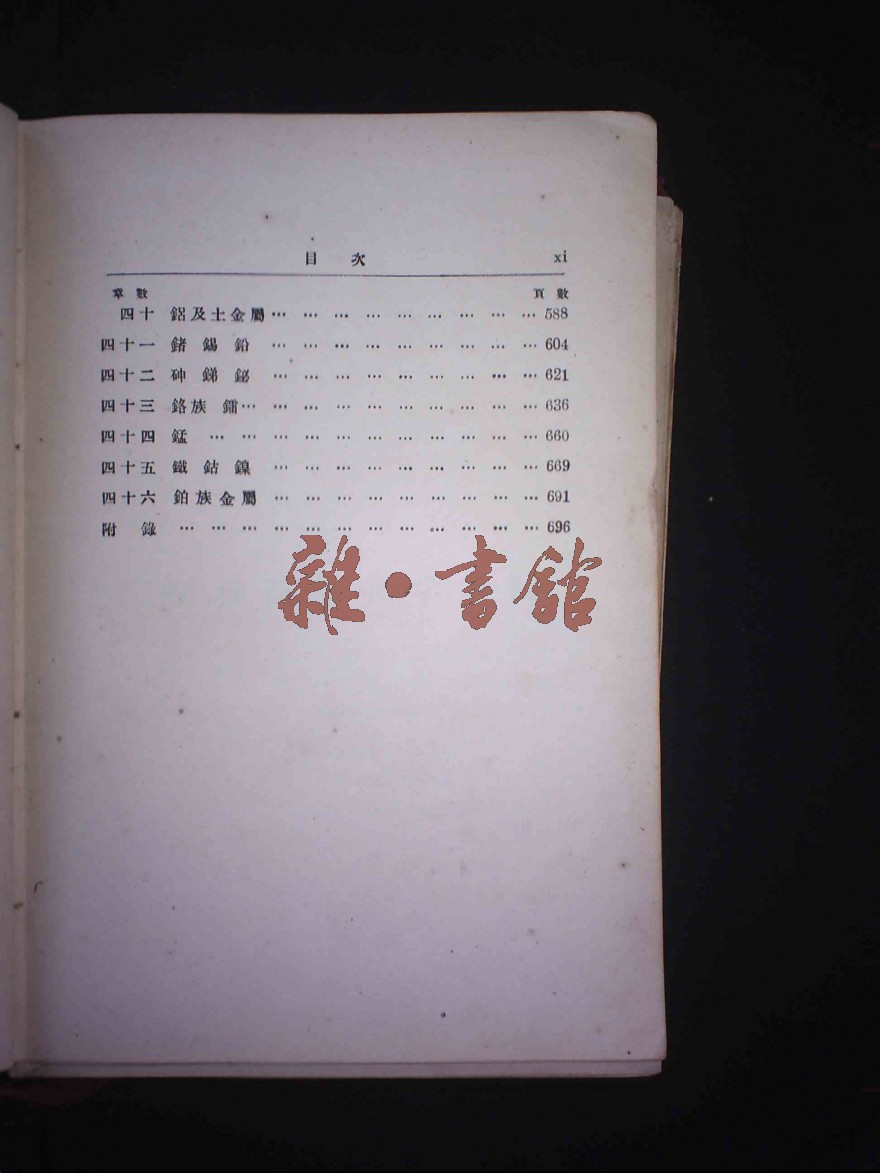 目 次 xi
章數 頁數
四十 鋁及土金屬 … … … … … … … … … 588
四十一 鍺 錫 鉛 … … … … … … … … … 604
四十二 砷 銻 鉍 … … … … … … … … … 621
四十三 鉻族 鐳 … … … … … … … … … … 636
四十四 錳 … … … … … … … … … … … 660
四十五 鐵 鈷 鎳 … … … … … … … … … 669
四十六 鉑族金屬 … … … … … … … … … 691
附 錄 … … … … … … … … … … … … 696
雜·書館